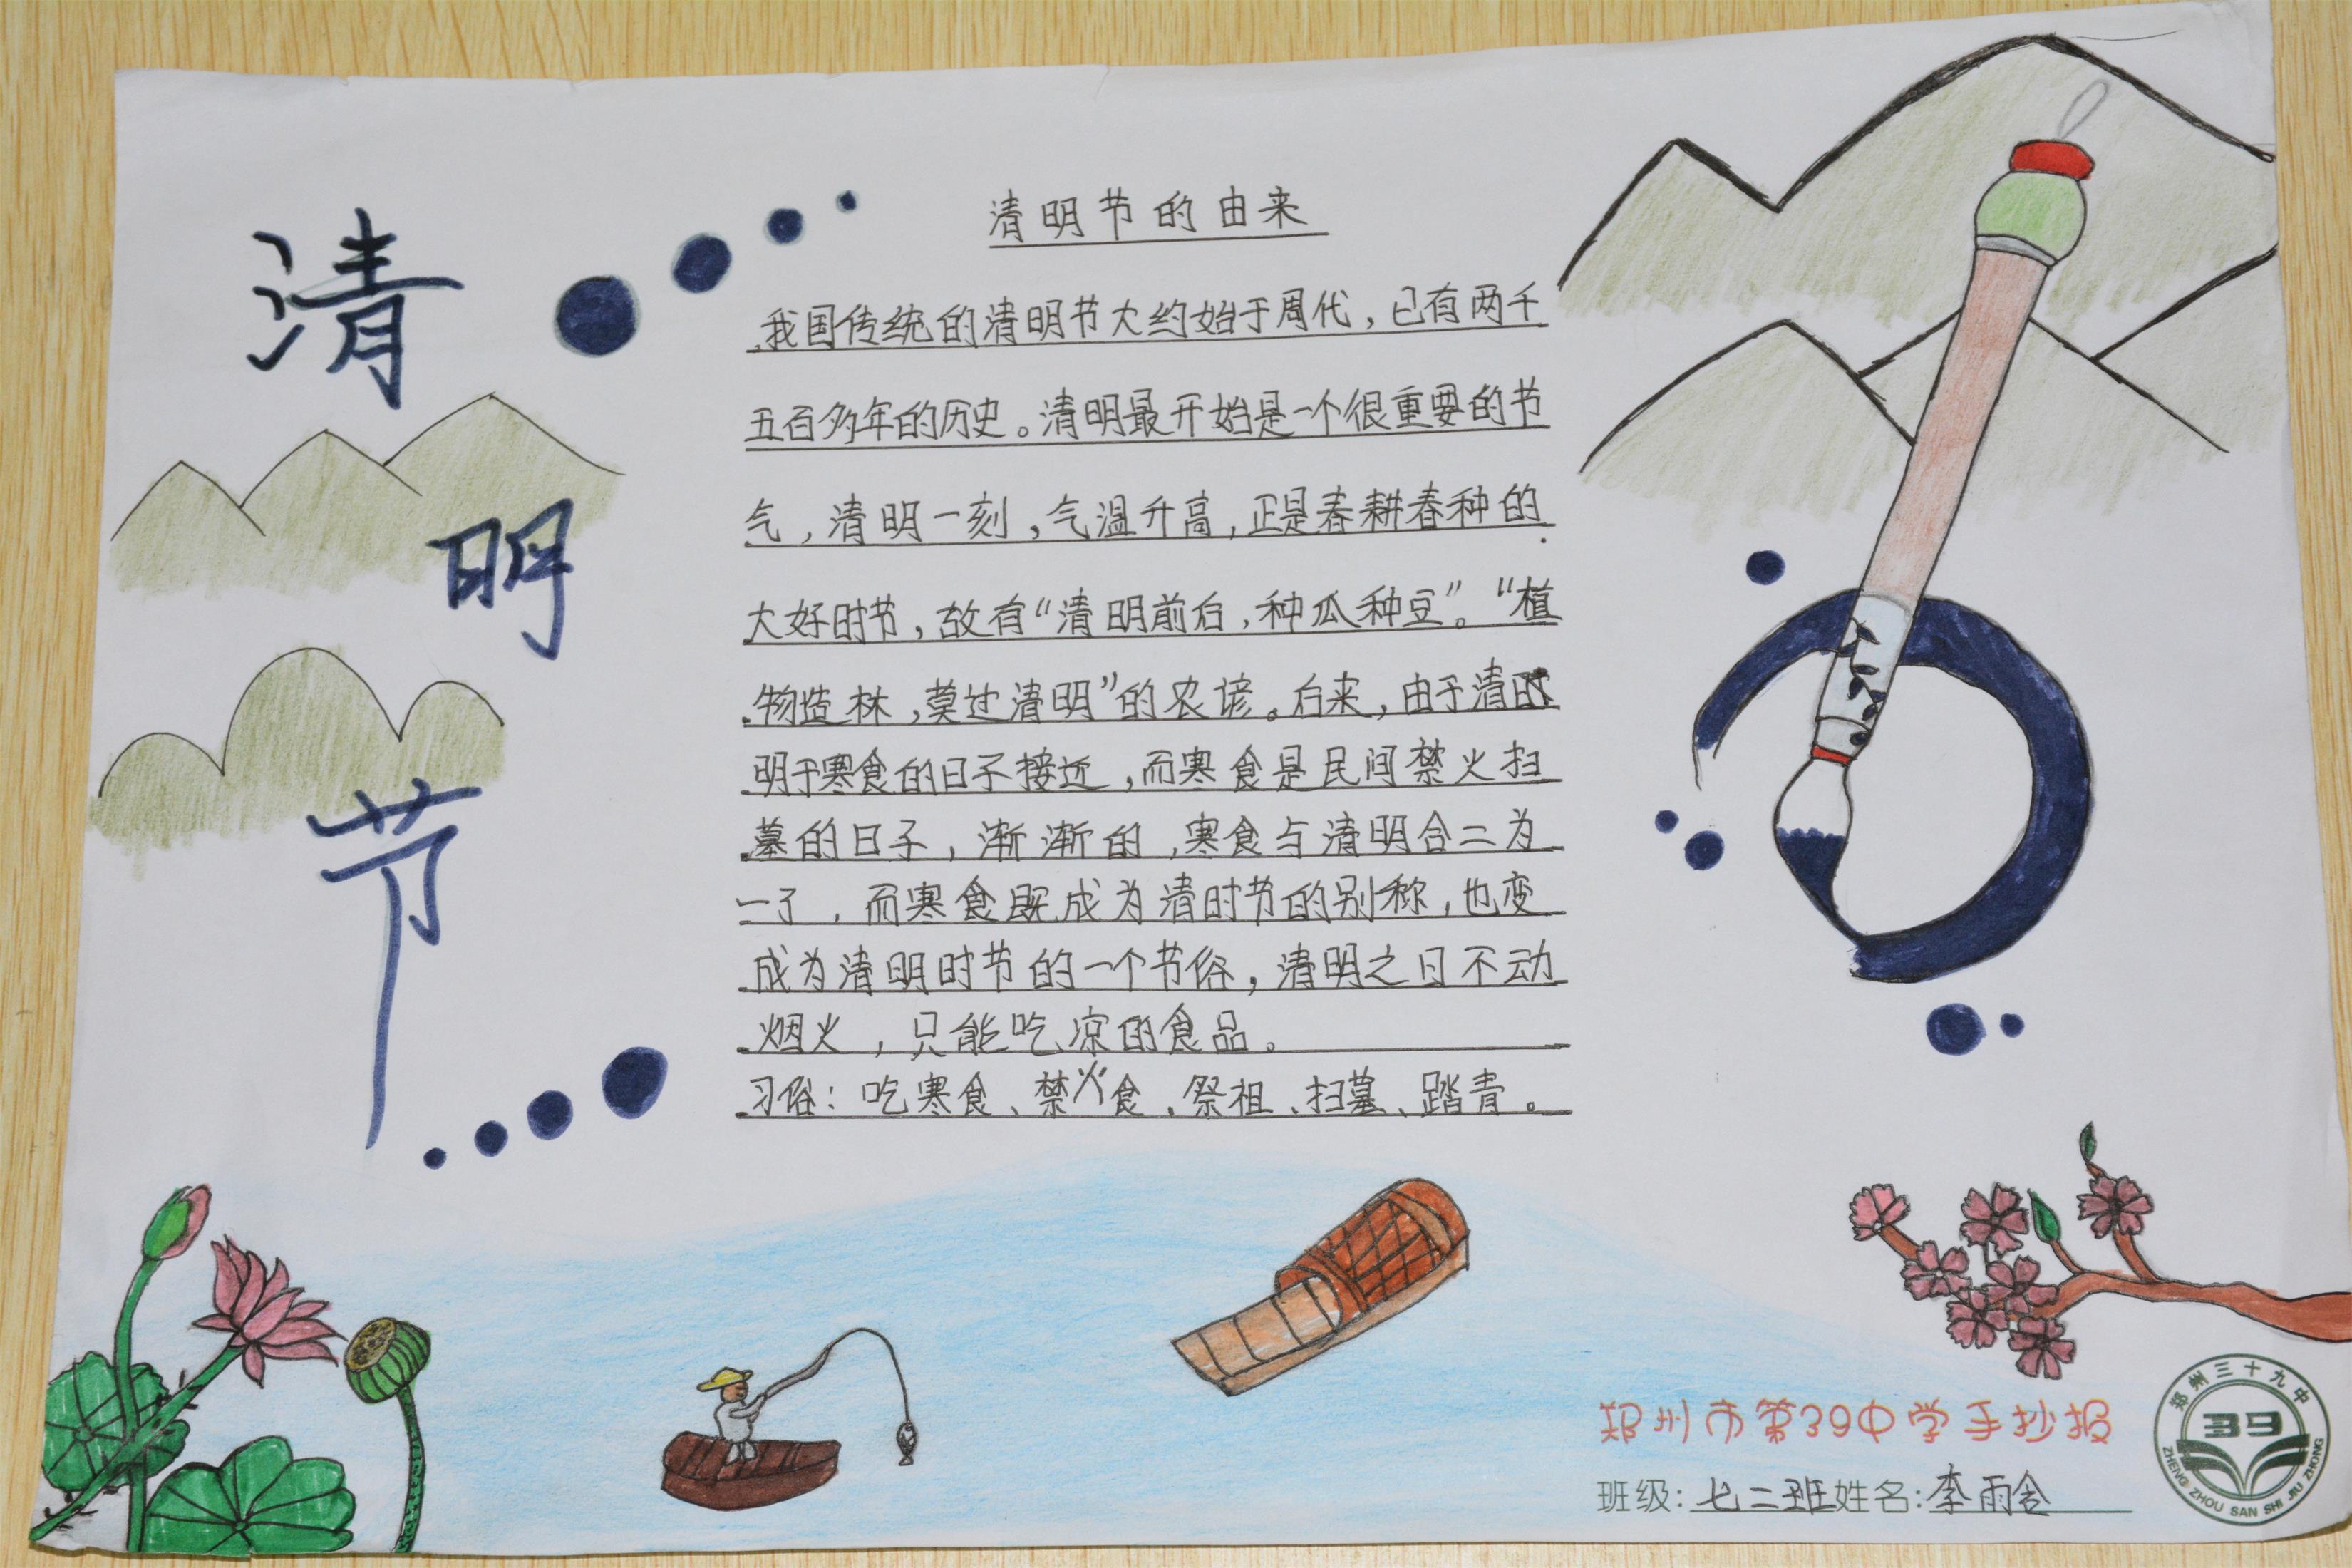 清明节
清明节的由来
我国传统的清明节大约始于周代，已有两千
五百多年的历史。清明最开始是一个很重要的节
气，清明一刻，气温升高，正是春耕春种的
大好时节，故有“清明前后，种瓜种豆”。“植
物造林，莫过清明”的农谚。后来，由于清
明于寒食的日子接近，而寒食是民间禁火扫
墓的日子，渐渐的，寒食与清明合二为
一了，而寒食既成为清时节的别称，也变
成为清明时节的一个节俗，清明之日不动
烟火，只能吃凉的食品。
习俗：吃寒食、禁火食、祭祖、扫墓、踏青。
郑州市第39中学手抄报
班级：七二班姓名：李雨含
郑州三十九中
39
ZHENG ZHOU SAN SHI JIU ZHONG